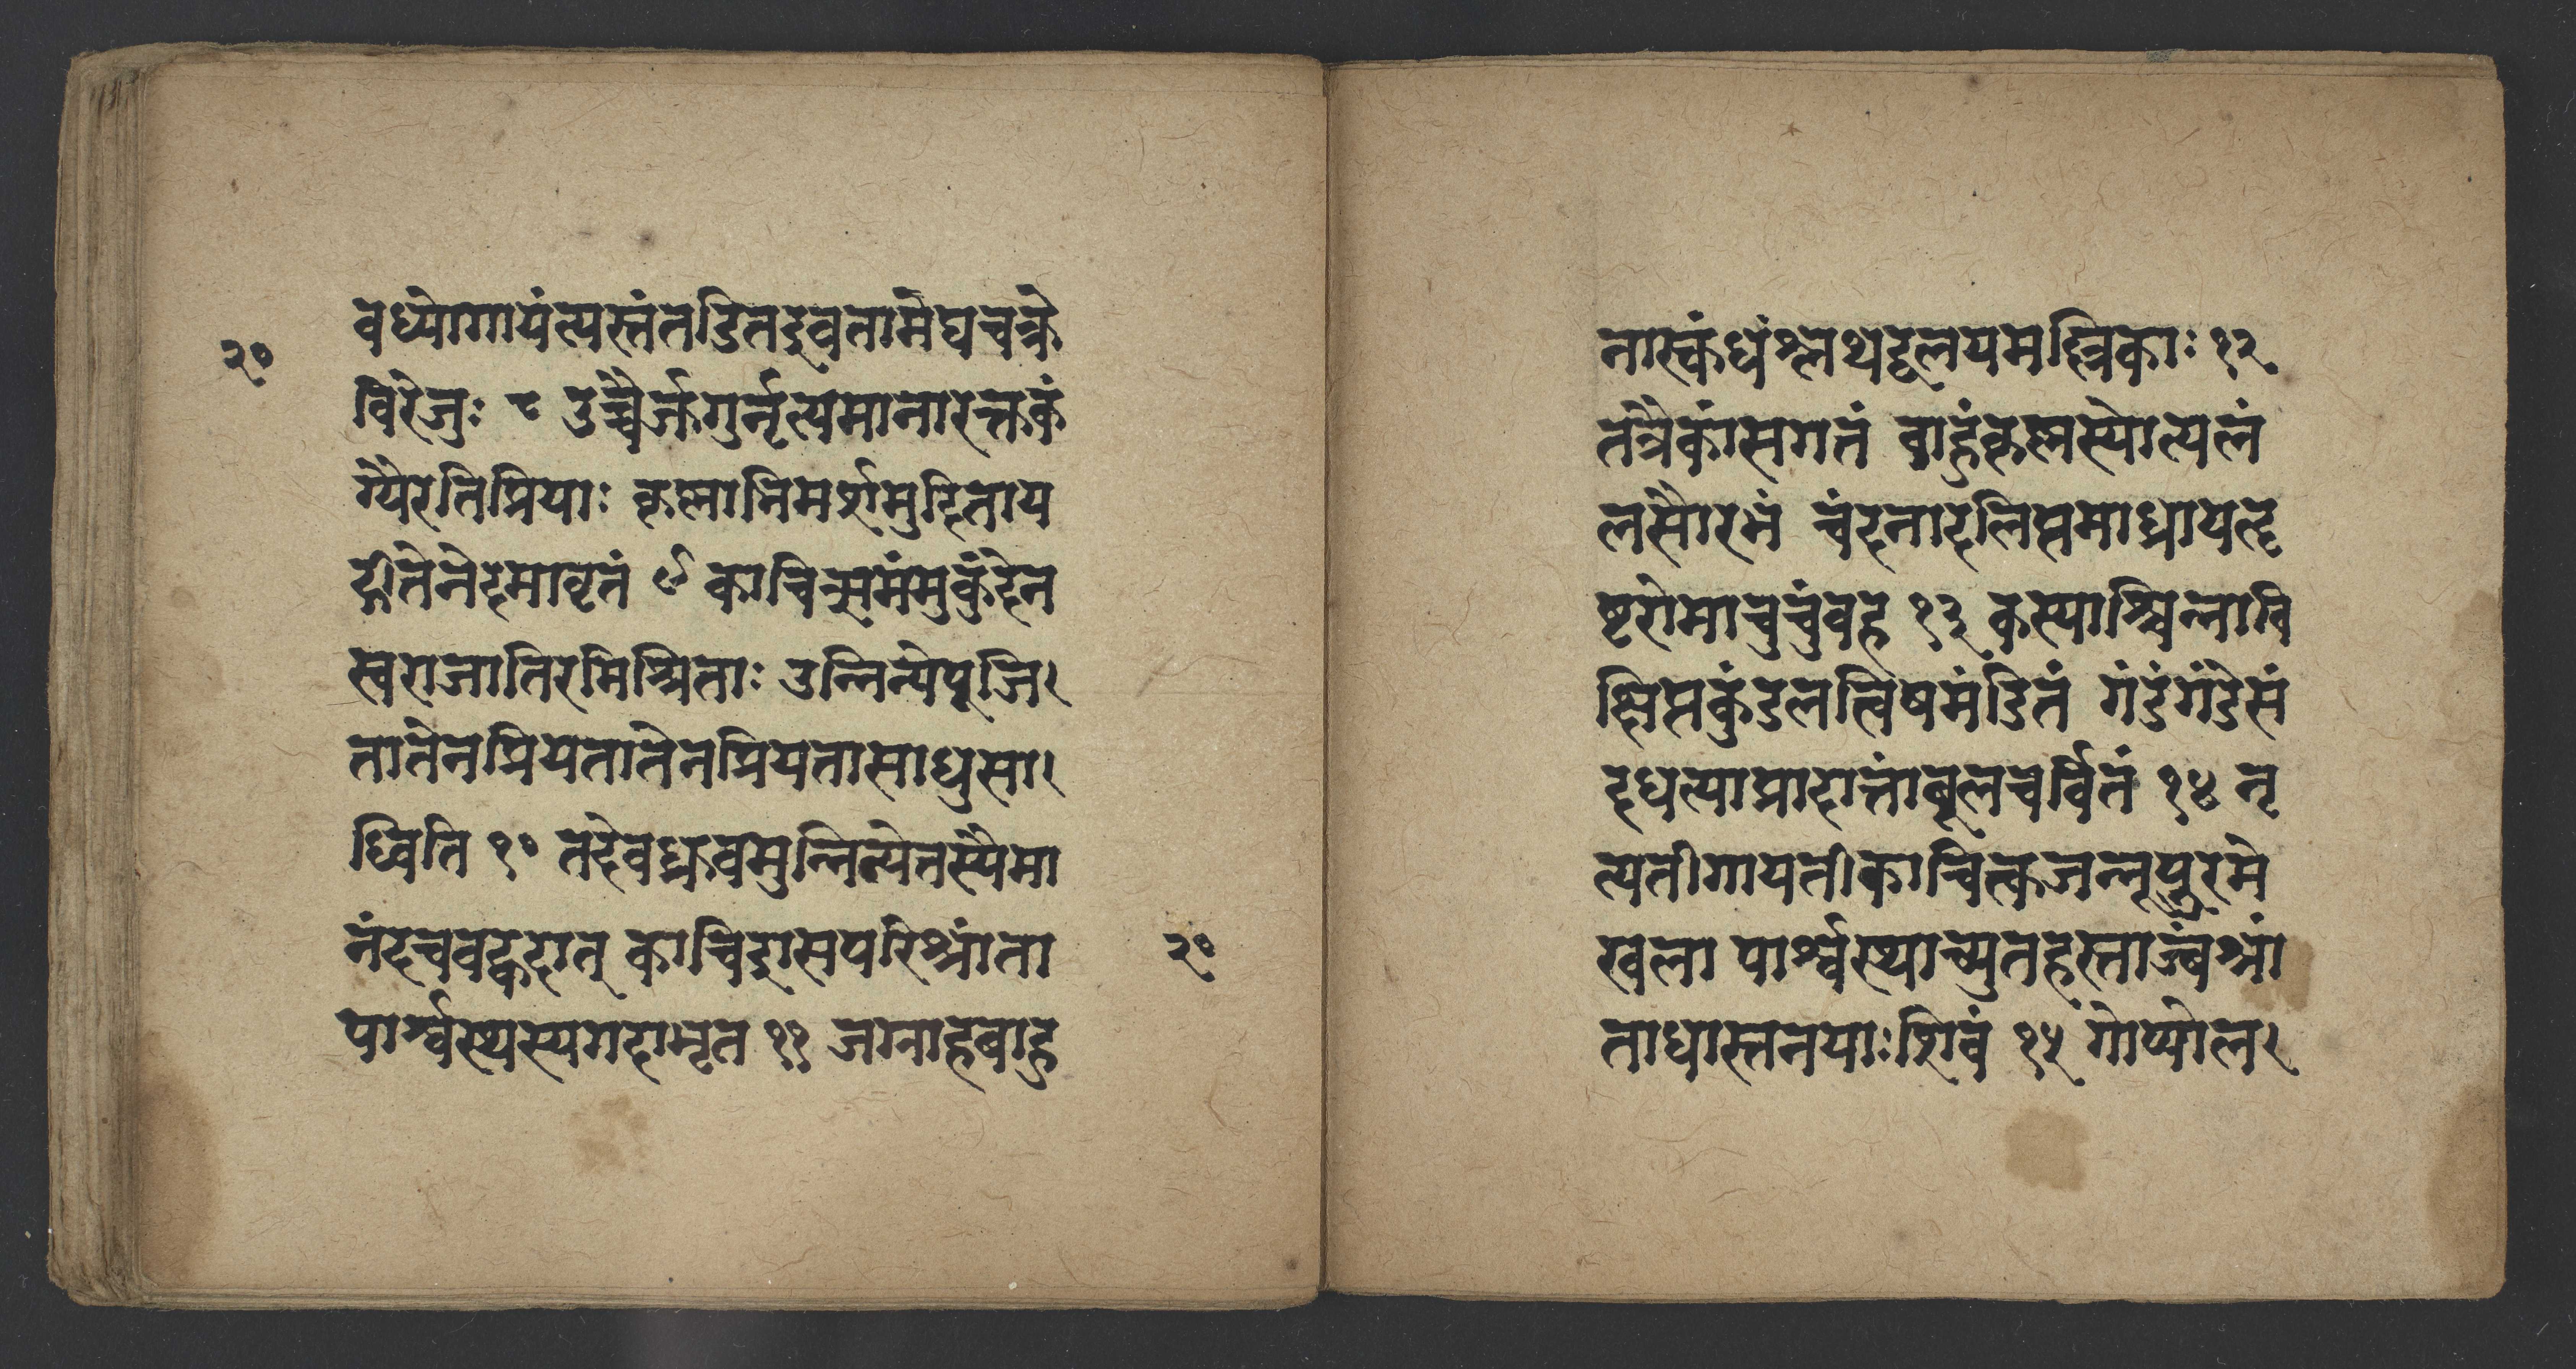 २०
वध्योगायंत्यस्तंतडितइवतामेघचक्रे
विरेजुः ८ उच्चैर्जगुर्नृत्यमानारक्तकं
ठ्योरतिप्रियाः कृष्णाभिमर्शमुदिताय
द्गीतेनेदमावृतं ९ काचित्समंमुकुंदेन
स्वराजातिरमिश्रिताः उन्निन्येपूजि।
तातेनप्रियेतातेनप्रियतासाधुसा।
ध्विति १० तदेवध्रुवमुन्निन्येतस्यैमा
नंदचवह्वदात् काचिद्रासपरिश्रांता
पार्श्वस्थस्यगदाभृत ११ जग्राहबाहु
२०
नास्कंधंश्लथद्वलयमल्लिकाः १२
तत्रैकांसगतं बाहुंकृष्णस्योत्पलं
लसौरभं चंदनादलिप्तमाघ्रायहृ
ष्टरोमाचुचुंबह १३ कस्याश्चिन्नावि
क्षिप्तकुंडलत्विषमंडितं गंडंगंडेसं
दधत्याप्रादात्तांबूलचर्वितं १४ नृ
त्यतीगायतीकाचित्कूजन्नूपुरमे
खला पार्श्वस्थाच्युतहस्ताब्जंश्रां
ताधास्तनयाःशिवं १५ गोप्योल।